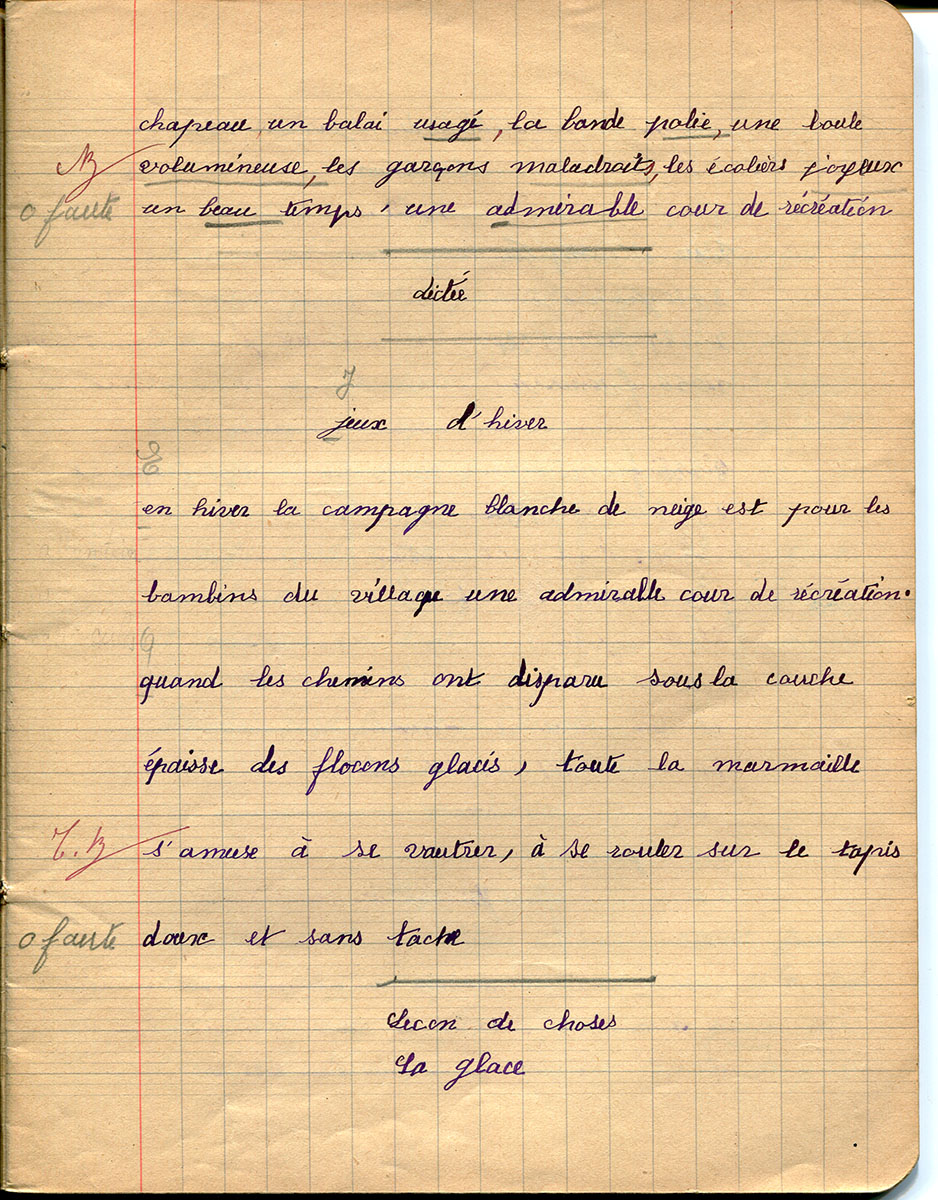 chapeau, un balai usagé, la bande polie, une boule
B volumineuse, les garçons maladroits, les écoliers joyeux
0 faute un beau temps, une admirable cour de récréation
dictée
J
jeux d'hiver
E
en hiver la campagne blanche de neige est pour les
bambins du village une admirable cour de récréation.
q
quand les chemins ont disparu sous la couche
épaisse des flocons glacés, toute la marmaille
T.B s'amuse à se vautrer, à se rouler sur le tapis
0 faute doux et sans tache
Lecon de choses
La glace